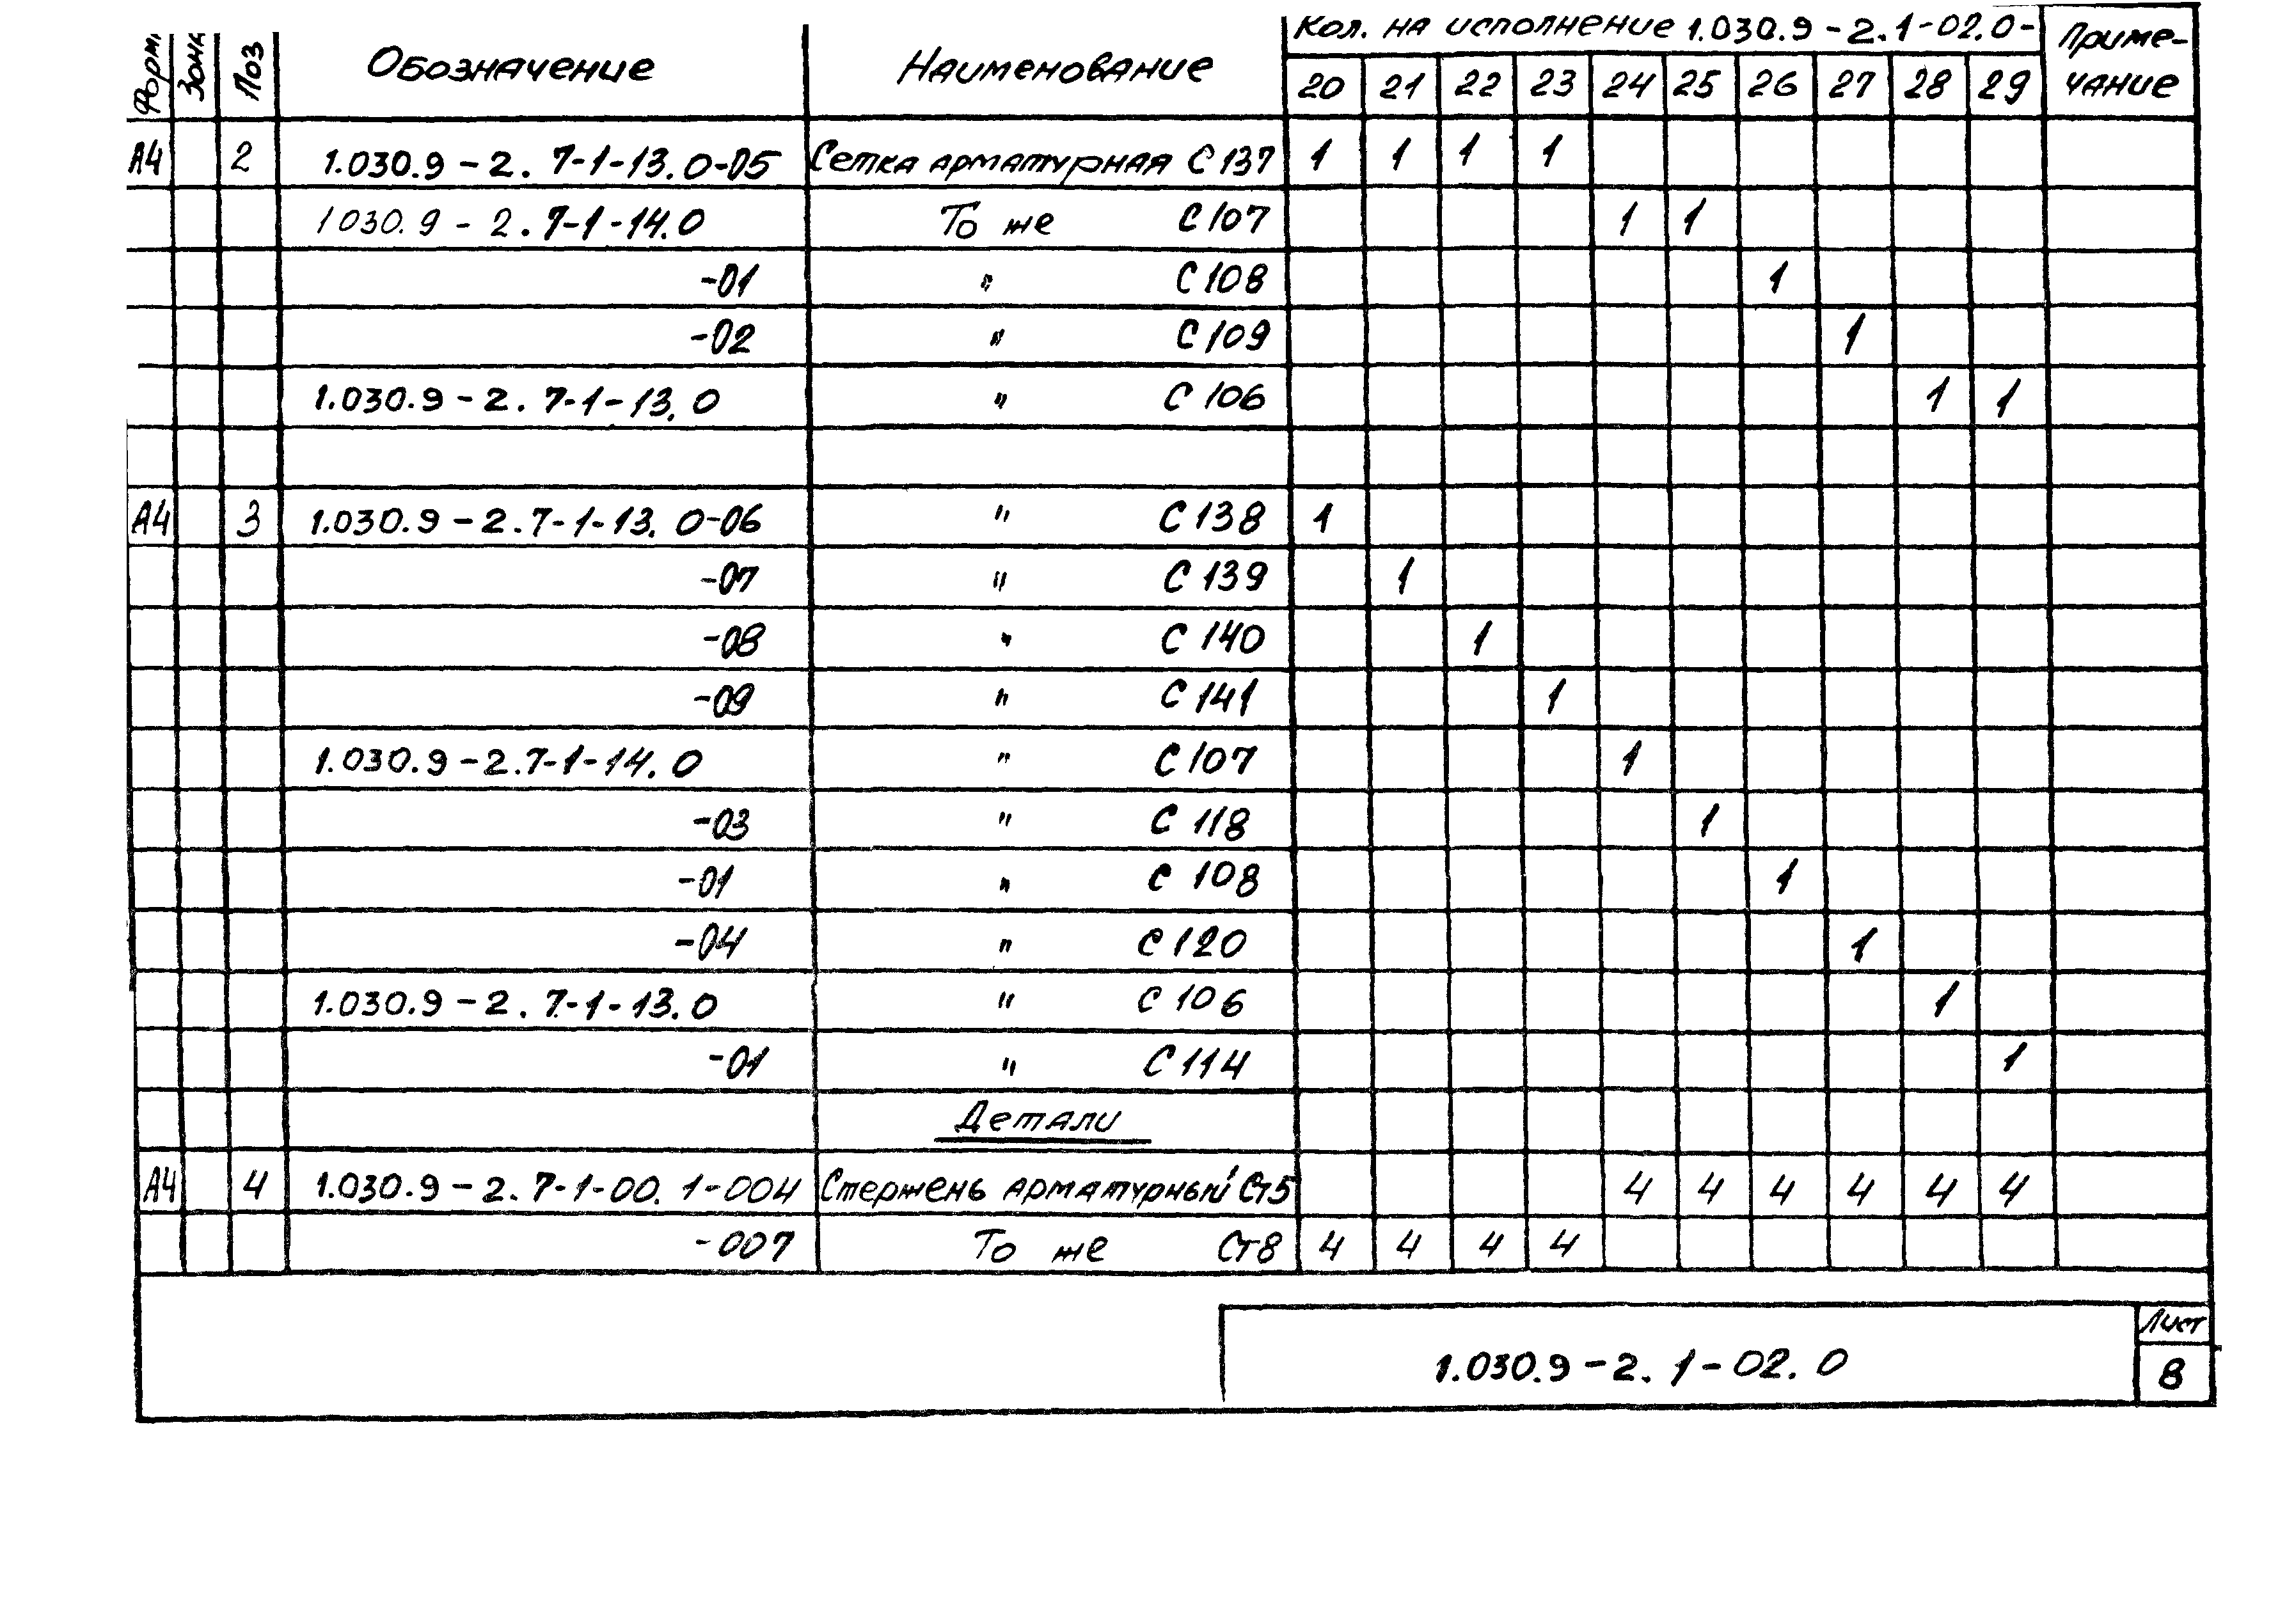 Форм. Зона Поз Обозначение Наименование Кол. на исполнение 1.030.9-2.1-02.0- Приме-
чание
20 21 22 23 24 25 26 27 28 29
А4 2 1.030.9-2.7-1-13.0-05 Сетка арматурная С137 1 1 1 1
1.030.9-2.7-1-14.0 То же С107 1 1
-01 " С108 1
-02 " С109 1
1.030.9-2.7-1-13.0 " С106 1 1
А4 3 1.030.9-2.7-1-13.0-06 " С138 1
-07 " С139 1
-08 " С140 1
-09 " С141 1
1.030.9-2.7-1-14.0 " С107 1
-03 " С118 1
-01 " С108 1
-04 " С120 1
1.030.9-2.7-1-13.0 " С106 1
-01 " С114 1
Детали
А4 4 1.030.9-2.7-1-00.1-004 Стержень арматурный Ст5 4 4 4 4 4 4
-007 То же Ст8 4 4 4 4
1.030.9-2.1-02.0
Лист
8